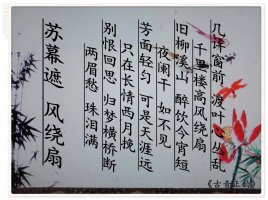 几许窗前 渡叶心丛乱
千里楼高风绕扇
旧柳溪山 醉饮今宵短
夜阑干 如不见
芳面轻匀 可是天涯远
只在长情西月挽
别恨回思 归梦横桥断
两眉愁 珠泪满
苏幕遮 风绕扇
《古音正